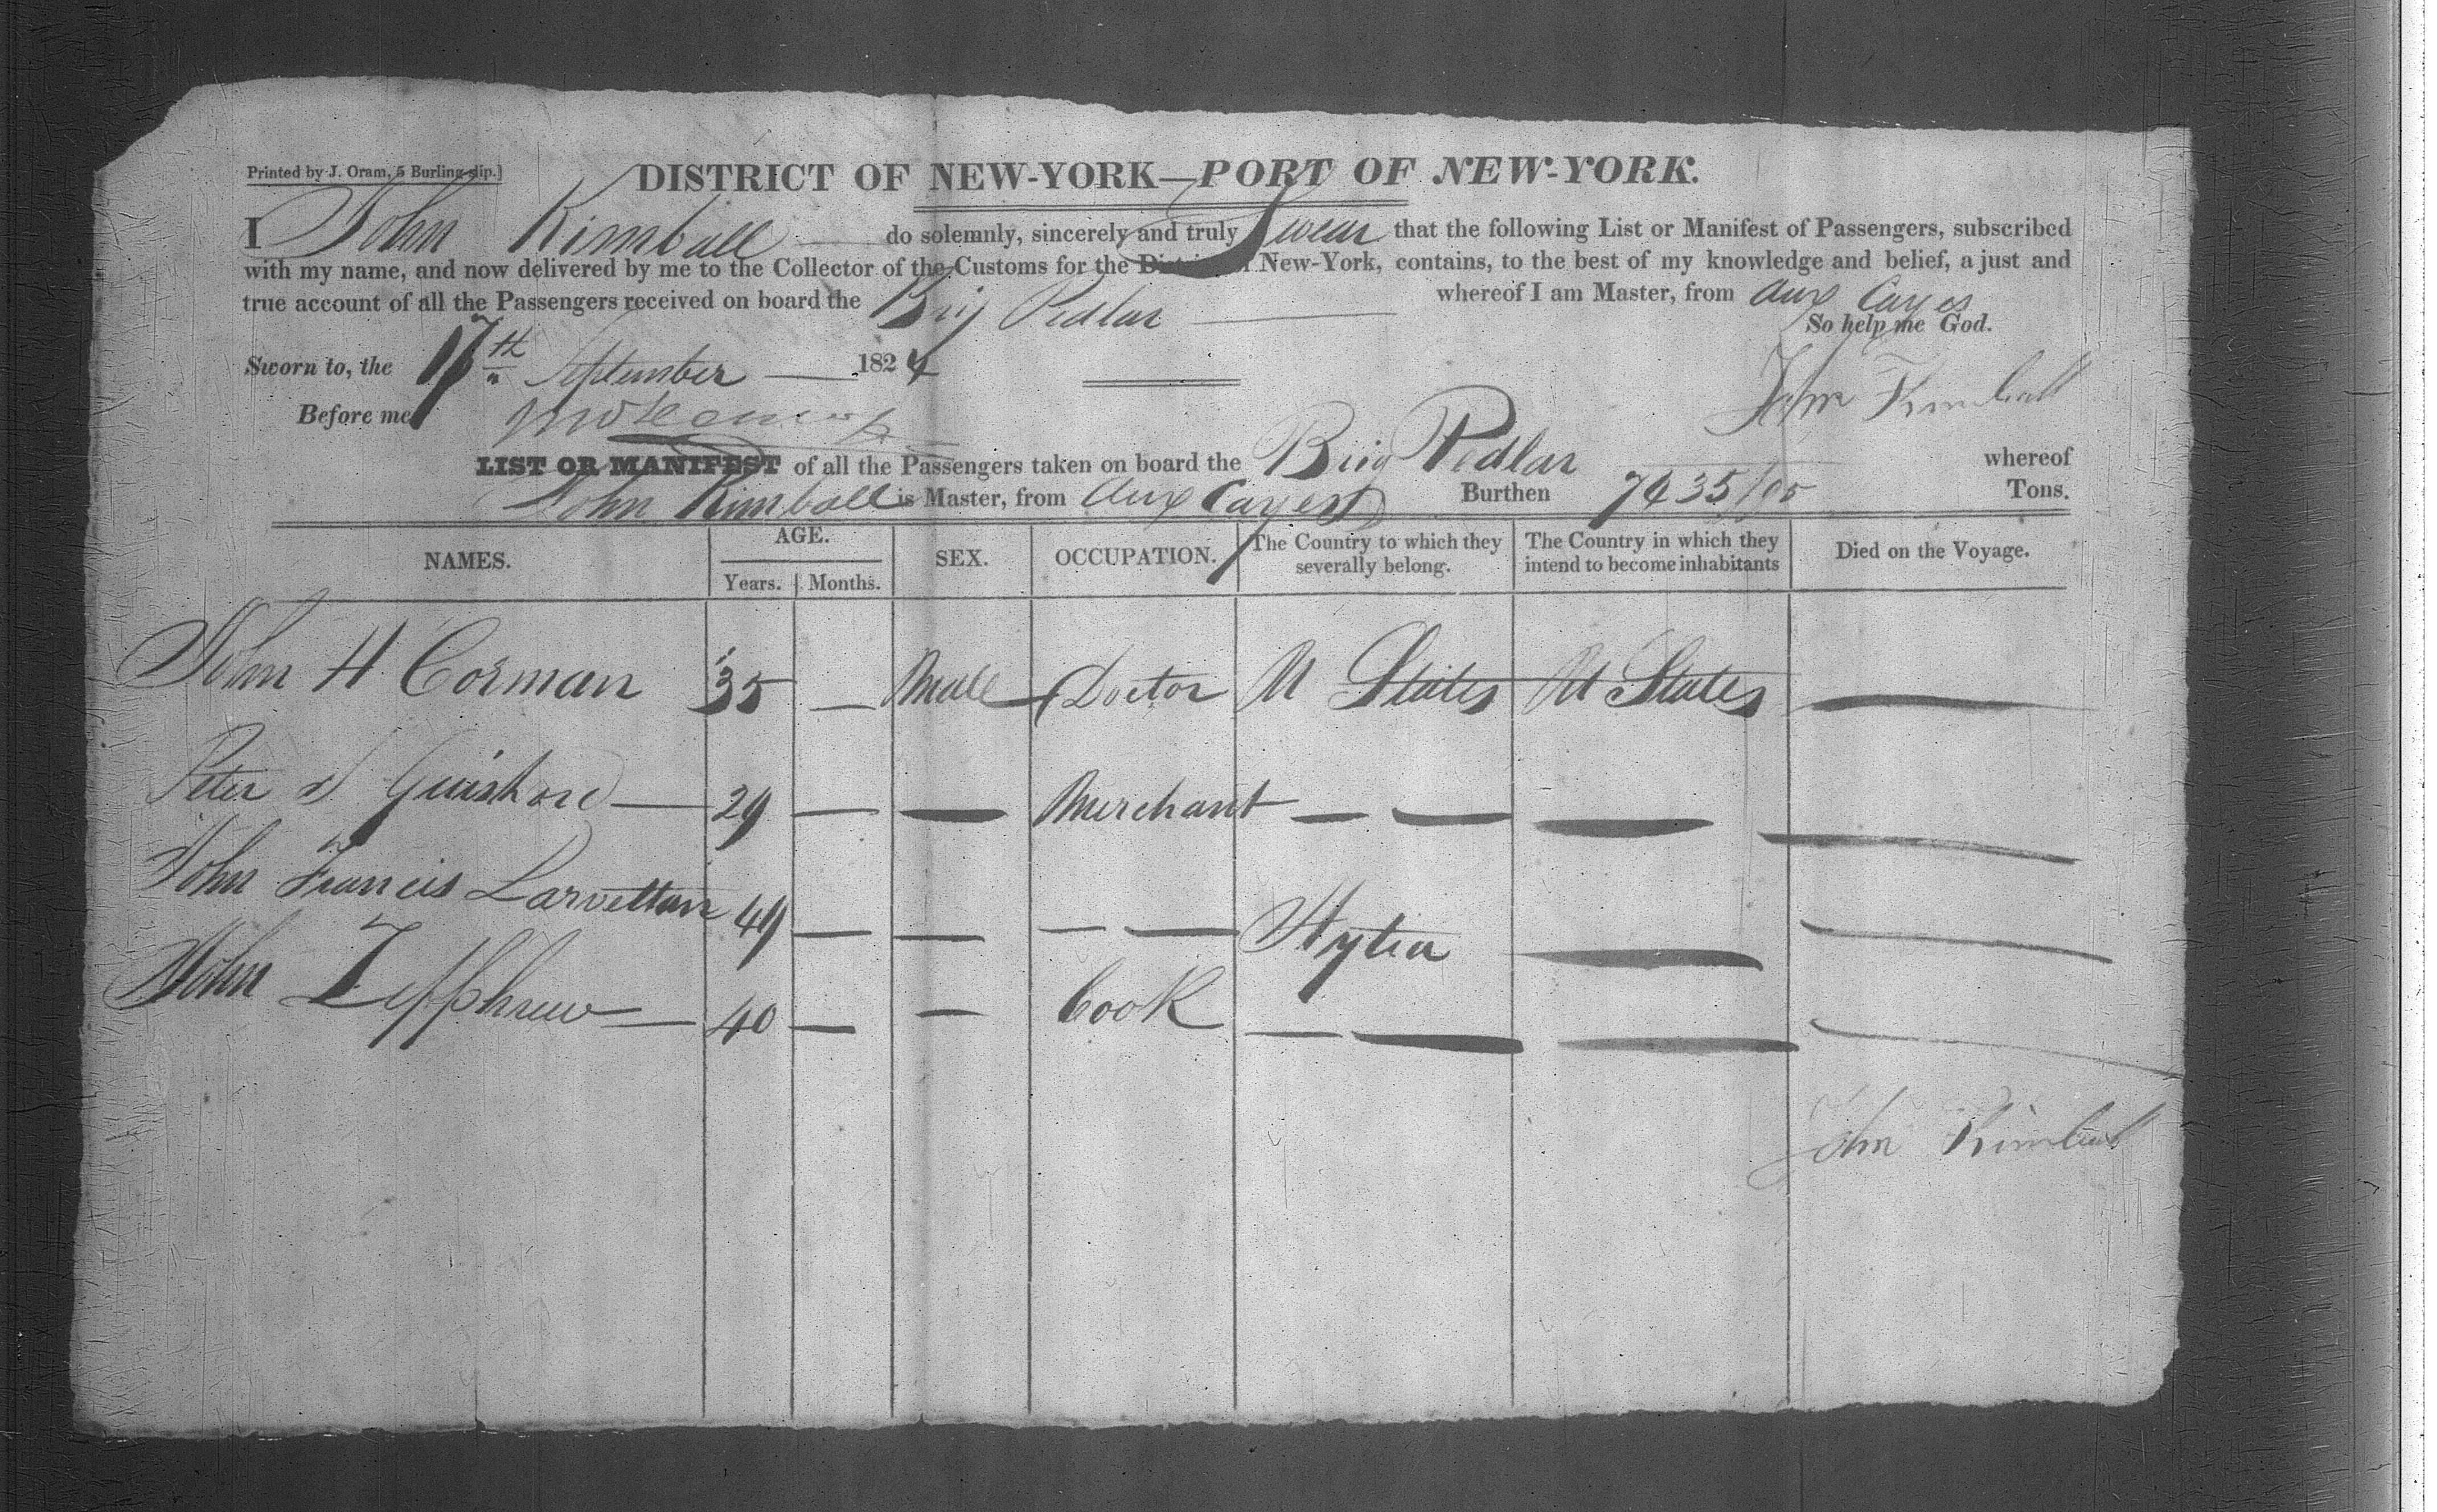 Printed by J. Oram, 5 Burling-slip.]
DISTRICT OF NEW-YORK—PORT OF NEW-YORK.
I John Kimball do solemnly, sincerely and truly Swear that the following List or Manifest of Passengers, subscribed
with my name, and now delivered by me to the Collector of the Customs for the District of New-York, contains, to the best of my knowledge and belief, a just and
true account of all the Passengers received on board the Brig Pedlar whereof I am Master, from Aux Cayes
So help me God.
Sworn to, the 17th September 1824
John Kimball
Before me
LIST OR MANIFEST of all the Passengers taken on board the Brig Pedlar whereof
John Kimball is Master, from Aux Cayes Burthen 74 35/95 Tons.
NAMES. AGE. SEX. OCCUPATION. The Country to which they severally belong. The Country in which they intend to become inhabitants Died on the Voyage.
Years. Months.
John H Corman 35 — Male Doctor U States U States —
Peter 29 — — Merchant — — — —
John Francis 49 — — — — Hytia — —
John 40 — — Cook — — — —
John Kimball